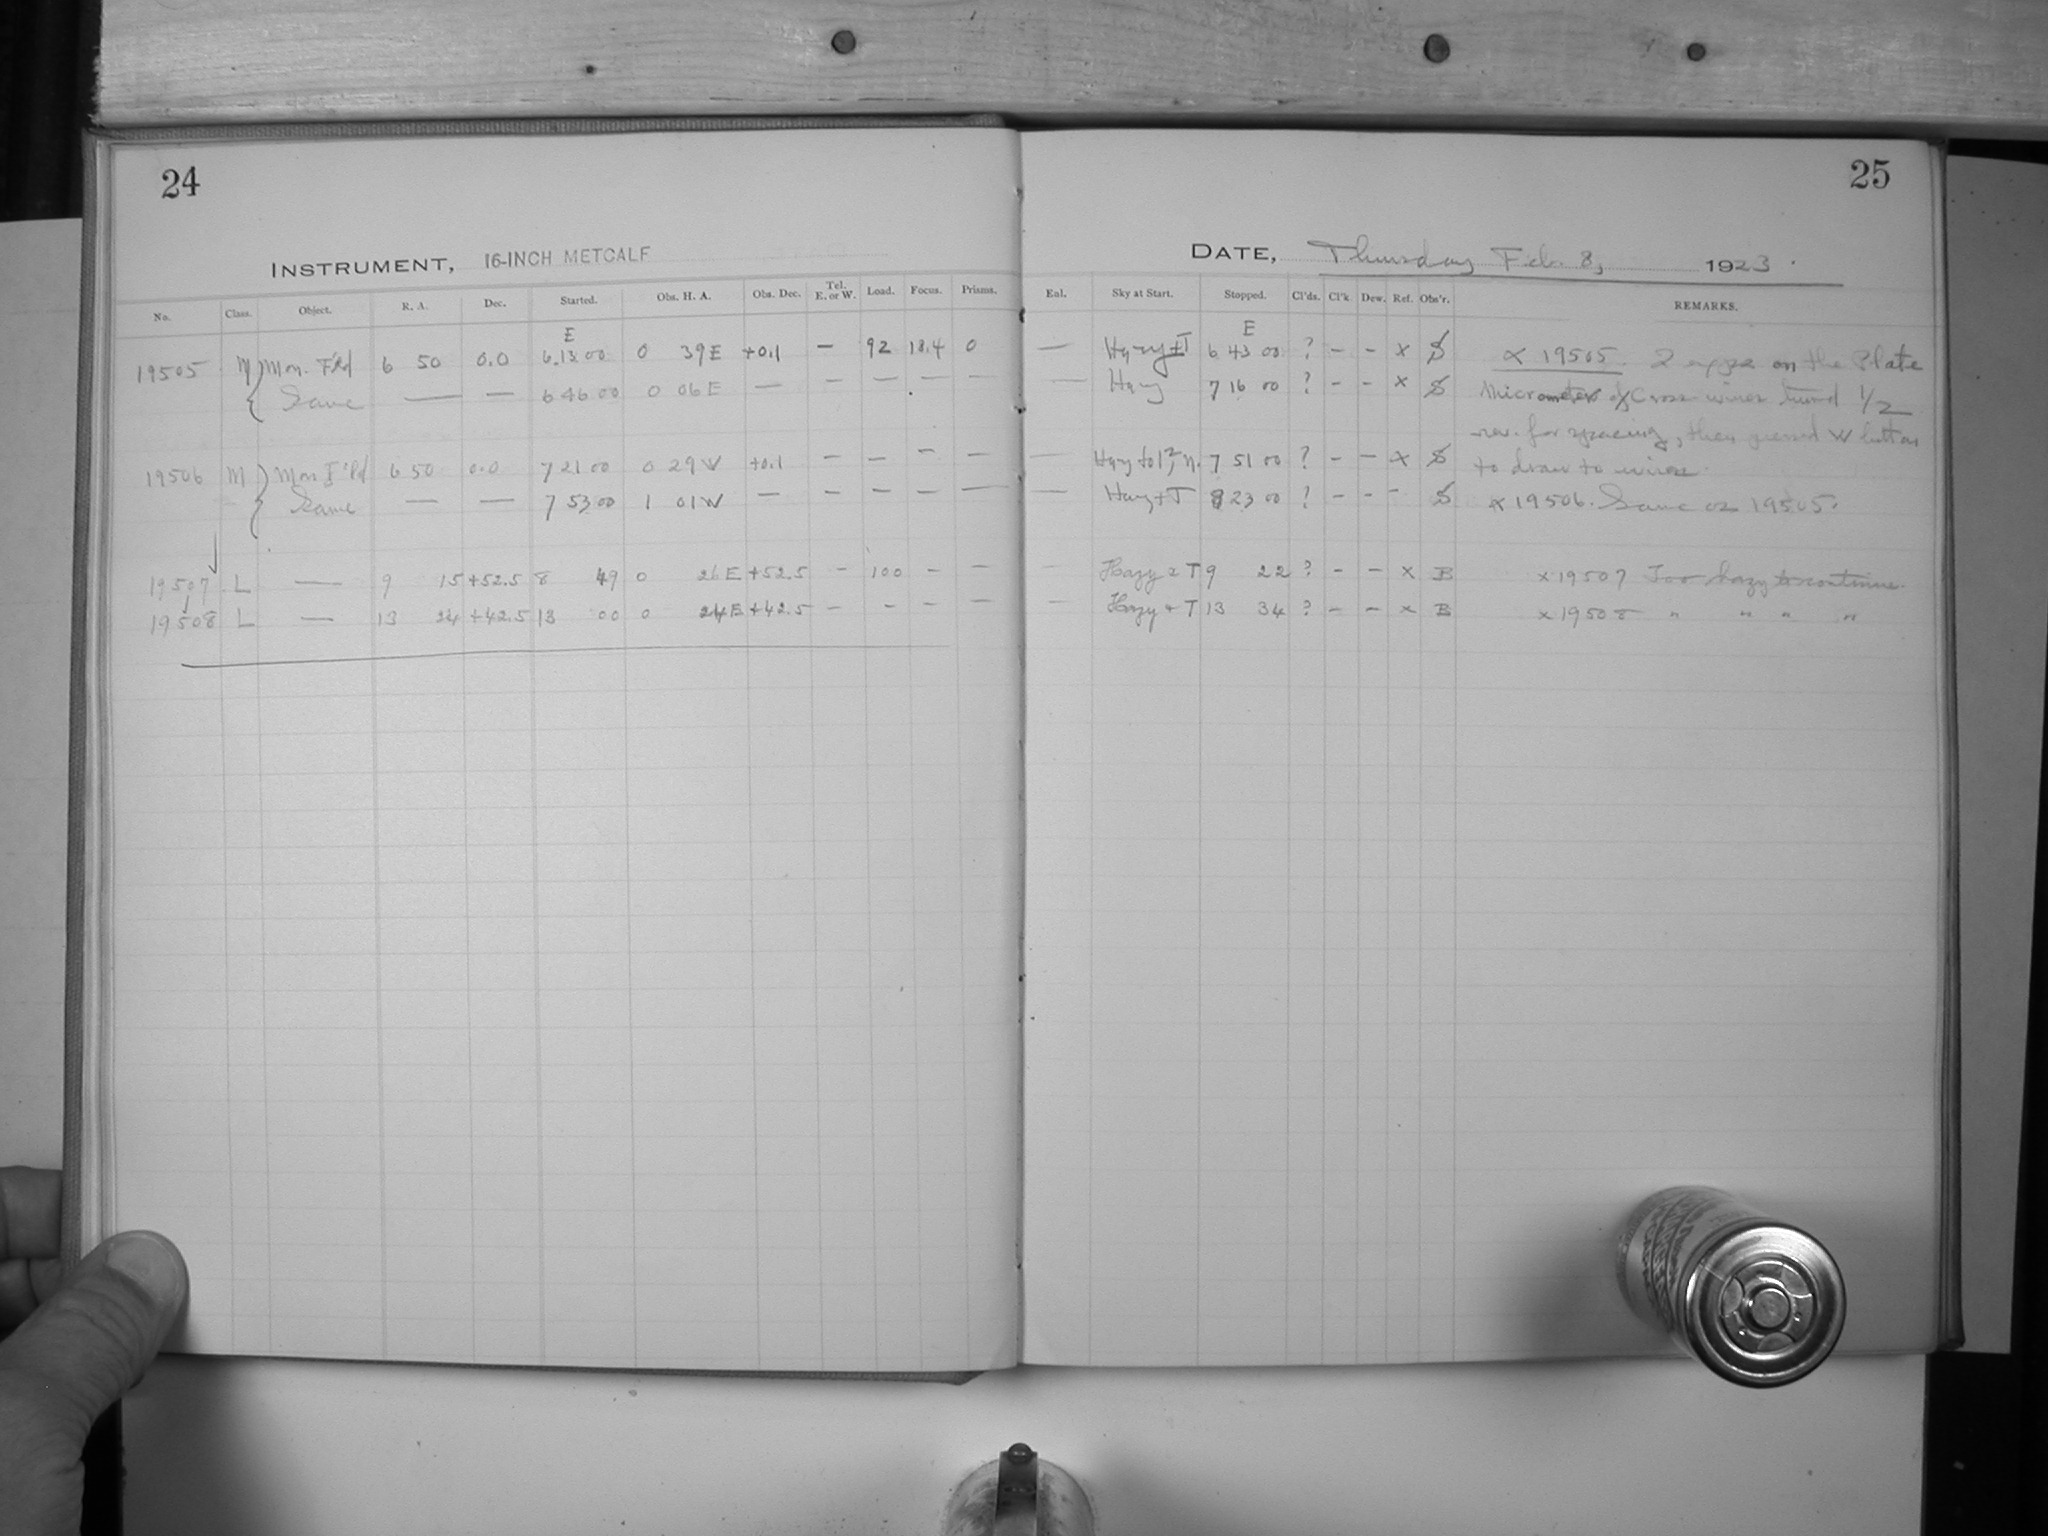 24
25
INSTRUMENT, 16-INCH METCALF
DATE, Thursday Feb. 8, 1923.
No. Class. Object. R. A. Dec. Started. Obs. H. A. Obs. Dec. Tel. E. or W. Load. Focus. Prisms. Eal. Sky at Start. Stopped. Cl'ds. Cl'k. Dew. Ref. Obs'r. REMARKS.
E E
19505 M Mon. F'ld 6 50 0.0 6.13 00 0 39 E +0.1 — 92 18.4 0 — Hazy + T 6 43 00 ? - - x S x 19505. 2 exps on the Plate
Same — — 6 46 00 0 06 E — — — — — — Hazy 7 16 00 ? - - x S Micrometer of Cross wires turned 1/2
rev. for spacing, then pressed W button
19506 M Mon F'ld 6 50 0.0 7 21 00 0 29 W +0.1 — — — — — Hazy to 7 51 00 ? - - x S to draw to wires.
Same — — 7 53 00 1 01 W — — — — — — Hazy + T 8 23 00 ? - - - S x 19506. Same as 19505.
19507 L — 9 15 +52.5 8 49 0 26 E +52.5 — 100 — — — Hazy & T 9 22 ? - - x B x 19507 Too hazy to continue.
19508 L — 13 24 +42.5 13 00 0 24 E +42.5 — - — — — Hazy + T 13 34 ? - - x B x 19508 " " " "